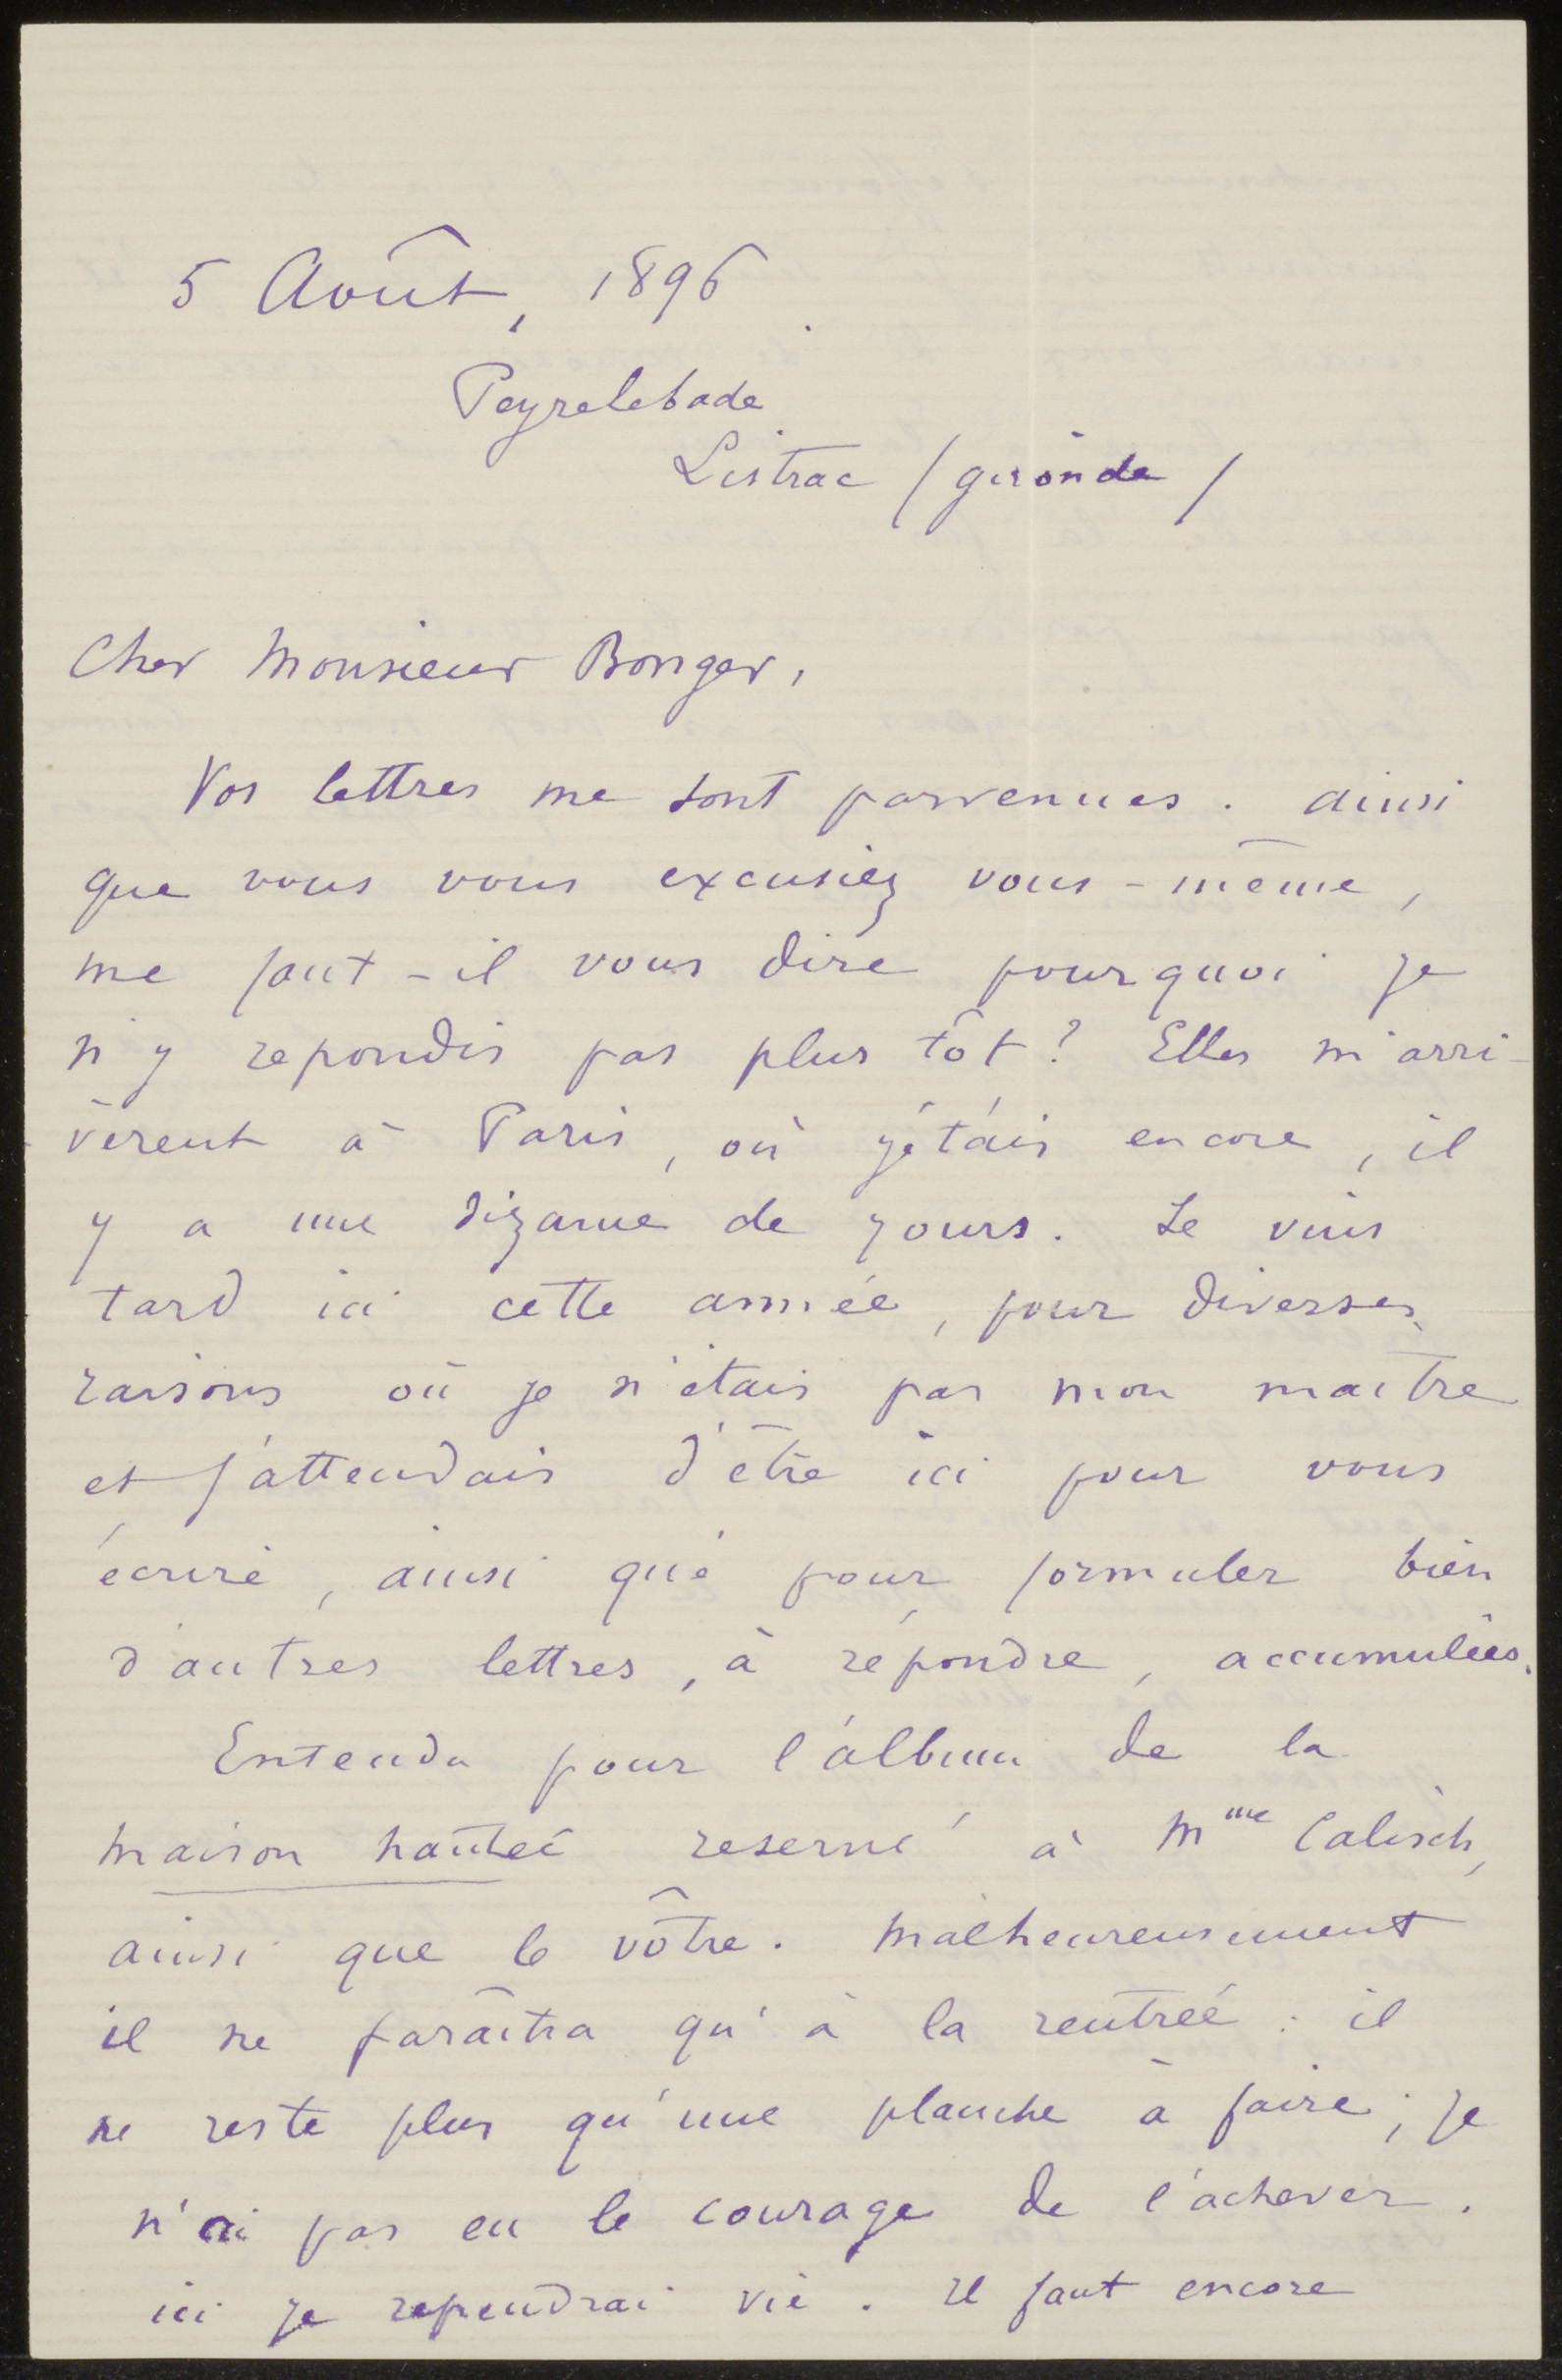 5 Août, 1896.
Peyrelebade
Listrac (gironde)
Cher Monsieur Bonger,
Vos lettres me sont parvenues. ainsi
que vous vous excusiez vous-même,
me faut-il vous dire pourquoi je
n'y repondis pas plus tôt? Elles m'arri-
vèrent à Paris, où j'étais encore, il
y a une dizaine de jours. Je vins
tard ici cette année, pour diverses
raisons où je n'étais pas mon maître
et j'attendais d'être ici pour vous
écrire, ainsi que pour formuler bien
d'autres lettres, à répondre, accumulées.
Entendu pour l'album de la
maison hantée reservé à Mme Calisch,
ainsi que le vôtre. Malheureusement
il ne paraîtra qu'à la rentrée: il
ne reste plus qu'une planche à faire; je
n'ai pas eu le courage de l'achever.
ici je reprendrai vie. Il faut encore